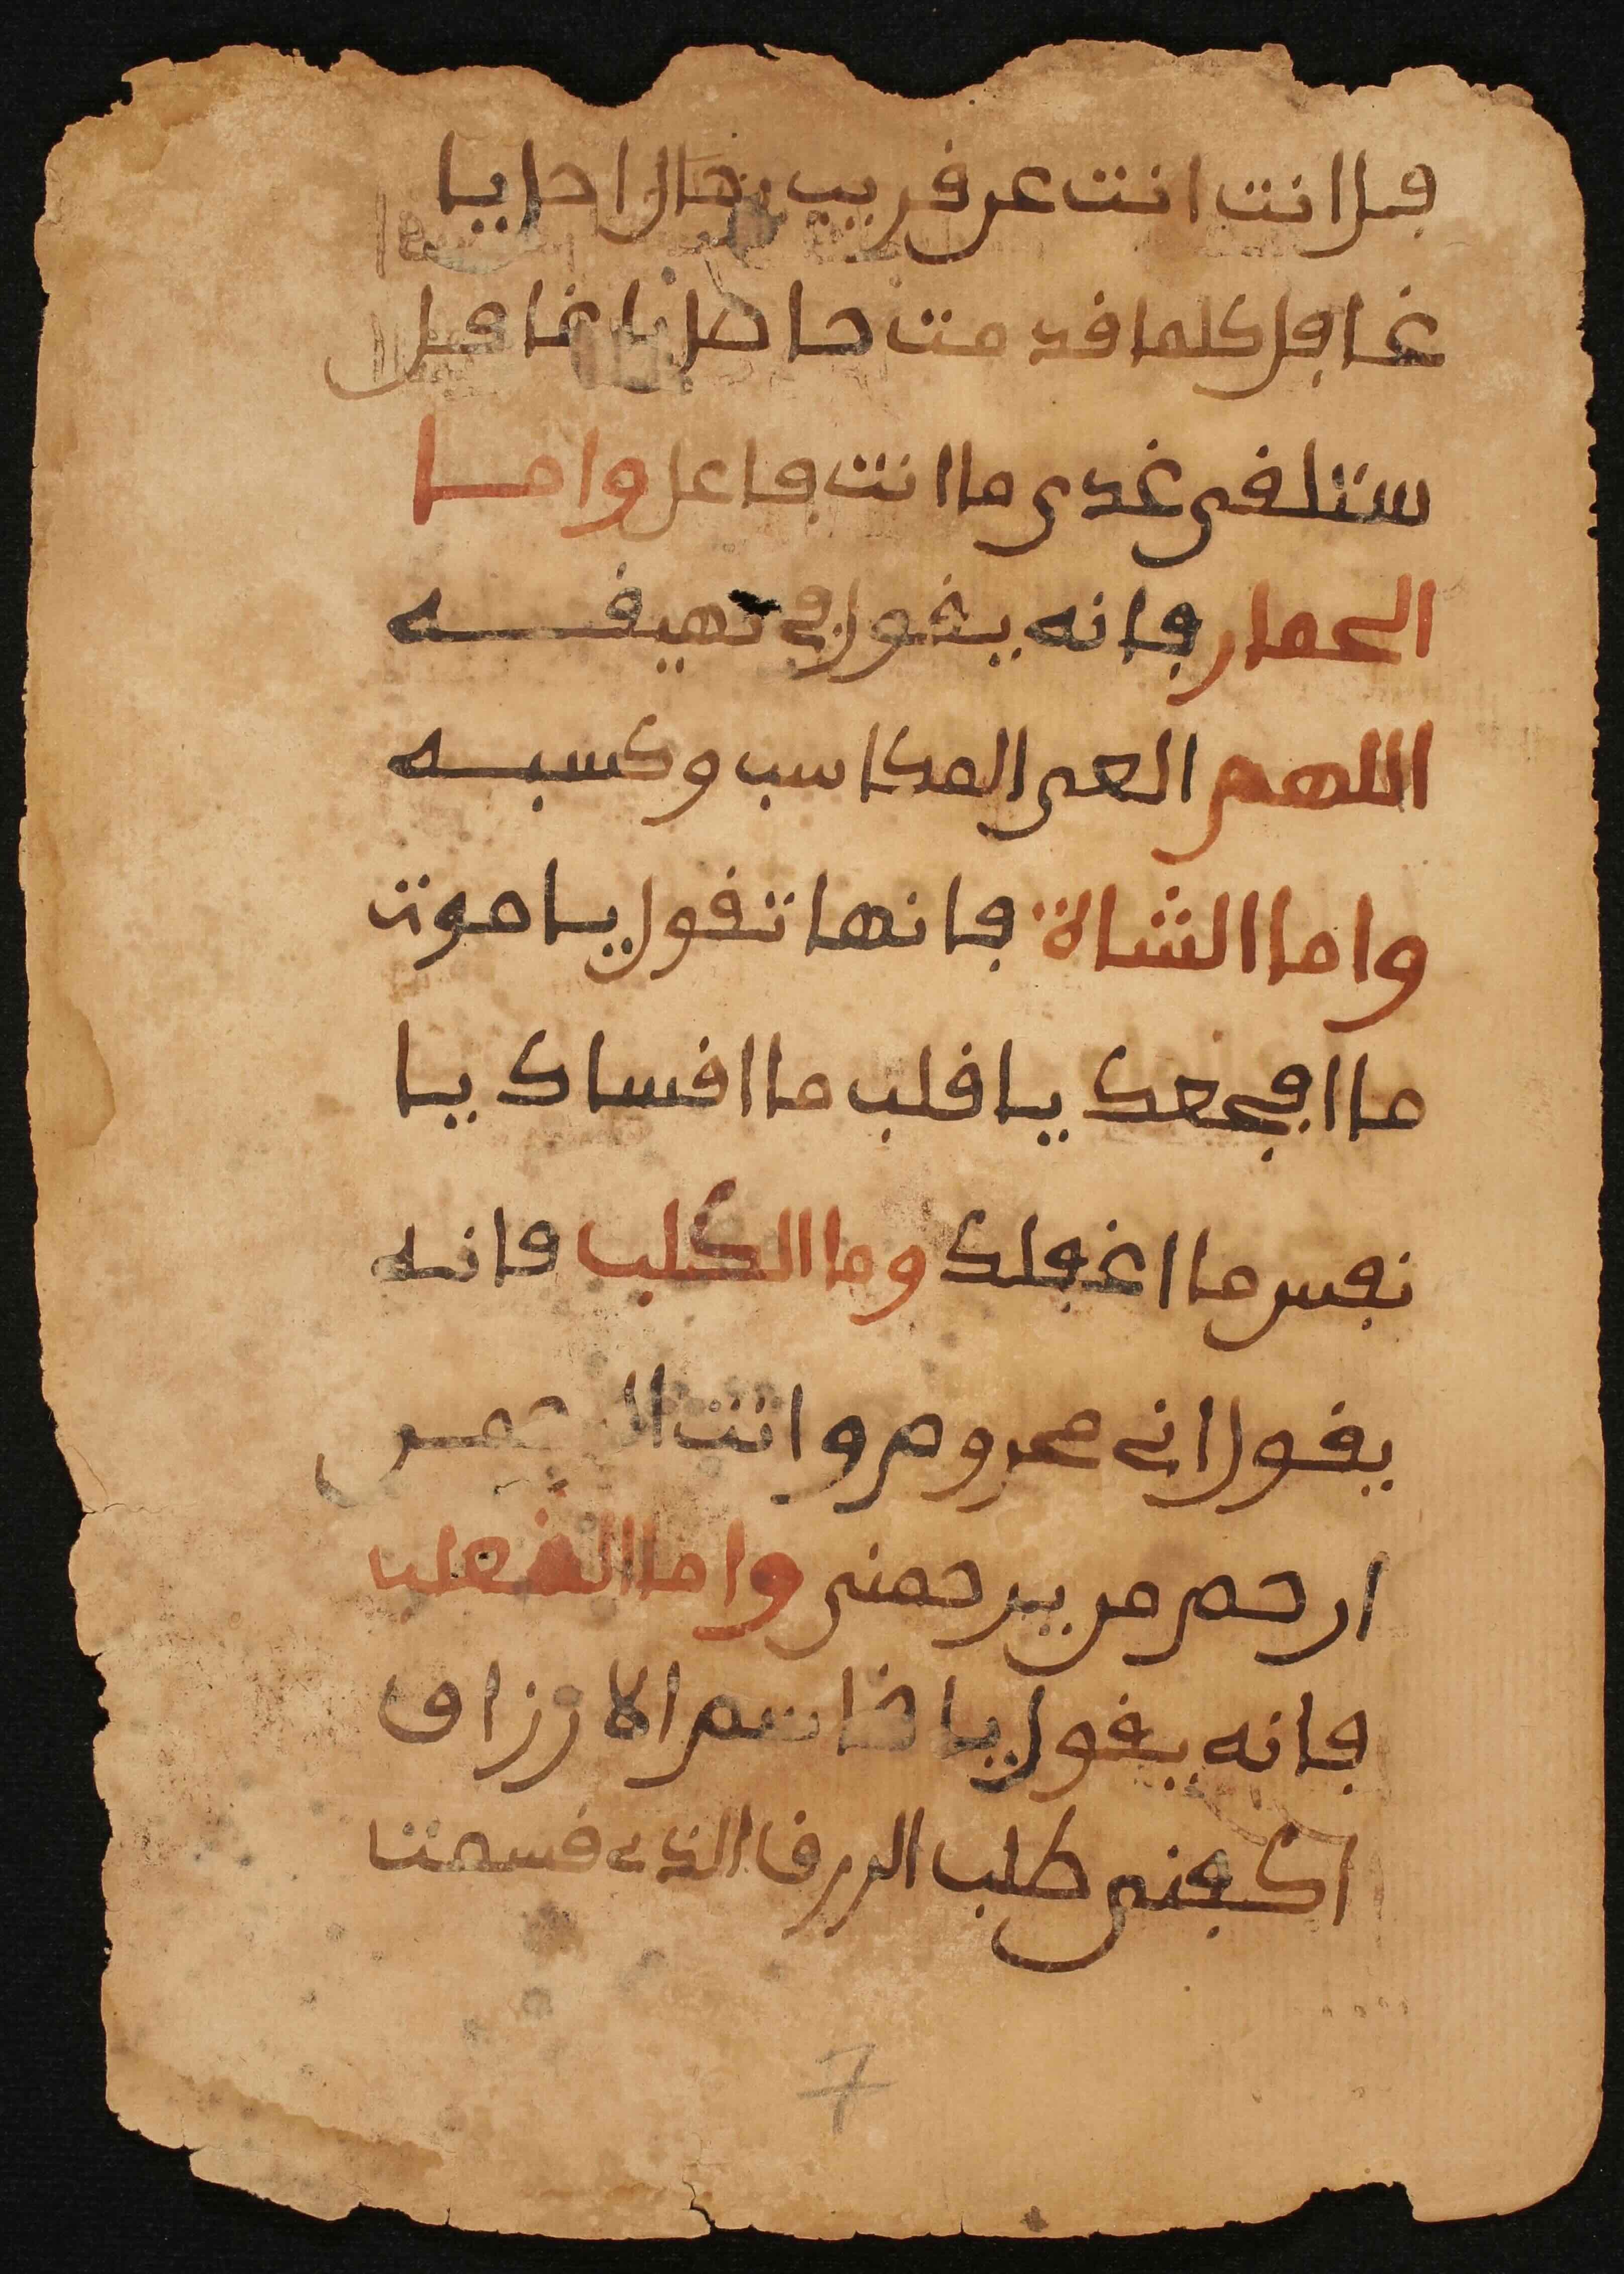 فل انت انت عن قريب راحل يا
غافل كلما قدمت حاصل يا غافل
ستلقى غدى ما انت فاعل واما
الحمار فانه يقول في نهيقه
اللهم العن المكاسب وكسبه
واما الشاة فانها تقول يا موت
ما افجعك يا قلب ما اقساك يا
نفس ما اغفلك وما الكلب فانه
يقول اني محروم وانت
ارحم من يرحمنى واما الثعلب
فانه يقول يا قاسم الارزاق
اكفنى طلب الرزق الذي قسمتنا
7